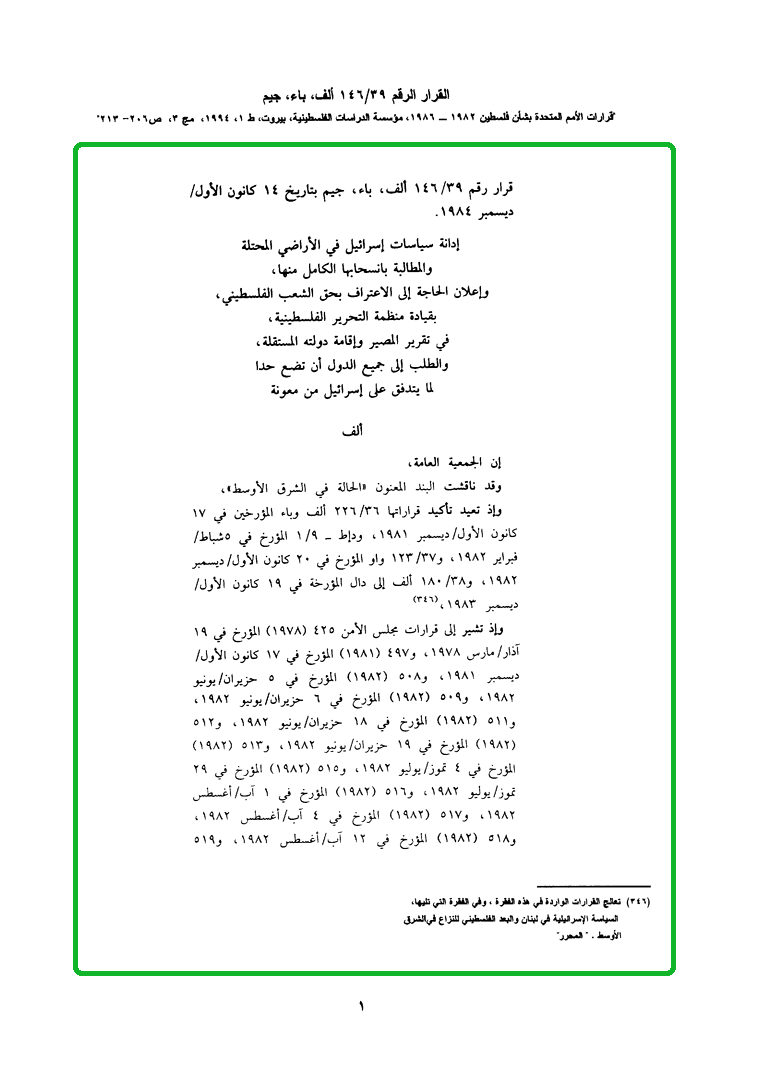 القرار الرقم ١٤٦/٣٩ ألف، باء، جيم
"قرارات الأمم المتحدة بشأن فلسطين ١٩٨٢ – ١٩٨٦، مؤسسة الدراسات الفلسطينية، بيروت، ط ١، ١٩٩٤، مج ٣، ص٢٠٦- ٢١٣"
قرار رقم ١٤٦/٣٩ ألف، باء، جيم بتاريخ ١٤ كانون الأول/
ديسمبر ١٩٨٤.
إدانة سياسات إسرائيل في الأراضي المحتلة
والمطالبة بانسحابها الكامل منها،
وإعلان الحاجة إلى الاعتراف بحق الشعب الفلسطيني،
بقيادة منظمة التحرير الفلسطينية،
في تقرير المصير وإقامة دولته المستقلة،
والطلب إلى جميع الدول أن تضع حدا
لما يتدفق على إسرائيل من معونة
ألف
إن الجمعية العامة،
وقد ناقشت البند المعنون «الحالة في الشرق الأوسط»،
وإذ تعيد تأكيد قراراتها ٢٢٦/٣٦ ألف وباء المؤرخين في ١٧
كانون الأول/ديسمبر ١٩٨١، ودإط – ١/٩ المؤرخ في ٥شباط/
فبراير ١٩٨٢، و١٢٣/٣٧ واو المؤرخ في ٢٠ كانون الأول/ديسمبر
١٩٨٢، و١٨٠/٣٨ ألف إلى دال المؤرخة في ١٩ كانون الأول/
ديسمبر ١٩٨٣،(٣٤٦)
وإذ تشير إلى قرارات مجلس الأمن ٤٢٥ (١٩٧٨) المؤرخ في ١٩
آذار/مارس ١٩٧٨، و٤٩٧ (١٩٨١) المؤرخ في ١٧ كانون الأول/
ديسمبر ١٩٨١، و٥٠٨ (١٩٨٢) المؤرخ في ٥ حزيران/يونيو
١٩٨٢، و٥٠٩ (١٩٨٢) المؤرخ في ٦ حزيران/يونيو ١٩٨٢،
و٥١١ (١٩٨٢) المؤرخ في ١٨ حزيران/يونيو ١٩٨٢، و٥١٢
(١٩٨٢) المؤرخ في ١٩ حزيران/يونيو ١٩٨٢، و٥١٣ (١٩٨٢)
المؤرخ في ٤ تموز/يوليو ١٩٨٢، و٥١٥ (١٩٨٢) المؤرخ في ٢٩
تموز/يوليو ١٩٨٢، و٥١٦ (١٩٨٢) المؤرخ في ١ آب/أغسطس
١٩٨٢، و٥١٧ (١٩٨٢) المؤرخ في ٤ آب/أغسطس ١٩٨٢،
و٥١٨ (١٩٨٢) المؤرخ في ١٢ آب/أغسطس ١٩٨٢، و٥١٩
(٣٤٦) تعالج القرارات الواردة في هذه الفقرة ، وفي الفقرة التي تليها،
السياسة الإسرائيلية في لبنان والبعد الفلسطيني للنزاع في الشرق
الأوسط . " المحرر"
١